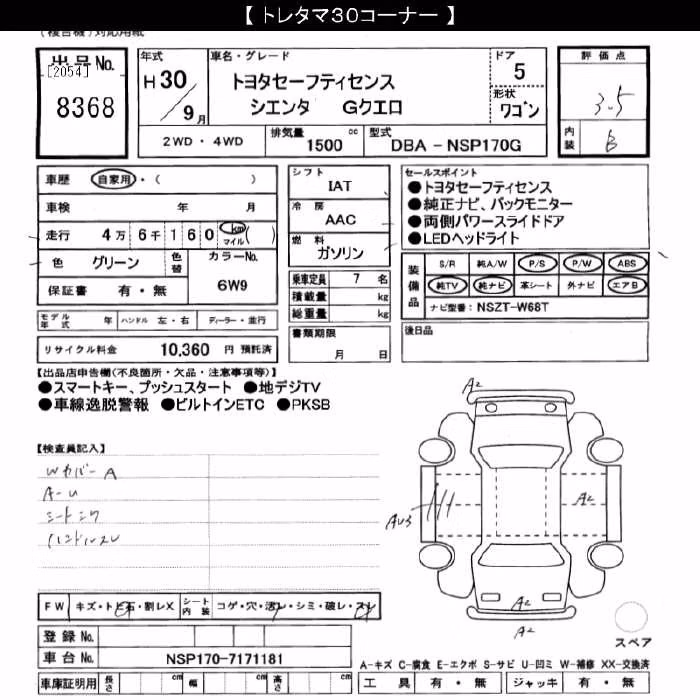 【 トレタマ30コーナー 】
(複合機)対応用紙
出品No.
[2054]
8368
年式
H30
／9月
車名・グレード
トヨタセーフティセンス
シエンタ Gクエロ
ドア
5
形状
ワゴン
評価点
3.5
内装
B
2WD・4WD
排気量
1500 cc
型式
DBA - NSP170G
車歴 自家用・( )
車検 年 月
走行 4万 6千 1 6 0 km マイル ( )
色 グリーン
色替
カラーNo.
6W9
保証書 有・無
シフト
IAT
冷房
AAC
燃料
ガソリン
乗車定員 7 名
積載量 kg
総重量 kg
書類期限
月 日
セールスポイント
●トヨタセーフティセンス
●純正ナビ、バックモニター
●両側パワースライドドア
●LEDヘッドライト
装備品
S/R 純A/W P/S P/W ABS
純TV 純ナビ 革シート 外ナビ エアB
ナビ型番: NSZT-W68T
後日品
モデル年式 年 ハンドル 左・右 ディーラー・並行
リサイクル料金 10,360 円 預託済
【出品店申告欄(不良箇所・欠品・注意事項等)】
●スマートキー、プッシュスタート ●地デジTV
●車線逸脱警報 ●ビルトインETC ●PKSB
【検査員記入】
Wカバー A
A-U
シートシワ
ハンドルスレ
A2
AU3
A2
A2
A2
スペア
FW キズ・トビ石・割レX
シート内装 コゲ・穴・汚レ・シミ・破レ・スレ
登録No.
車台No. NSP170-7171181
車庫証明用 長さ cm 幅 cm 高さ cm
A-キズ C-腐食 E-エクボ S-サビ U-凹ミ W-補修 XX-交換済
工具 有・無 ジャッキ 有・無